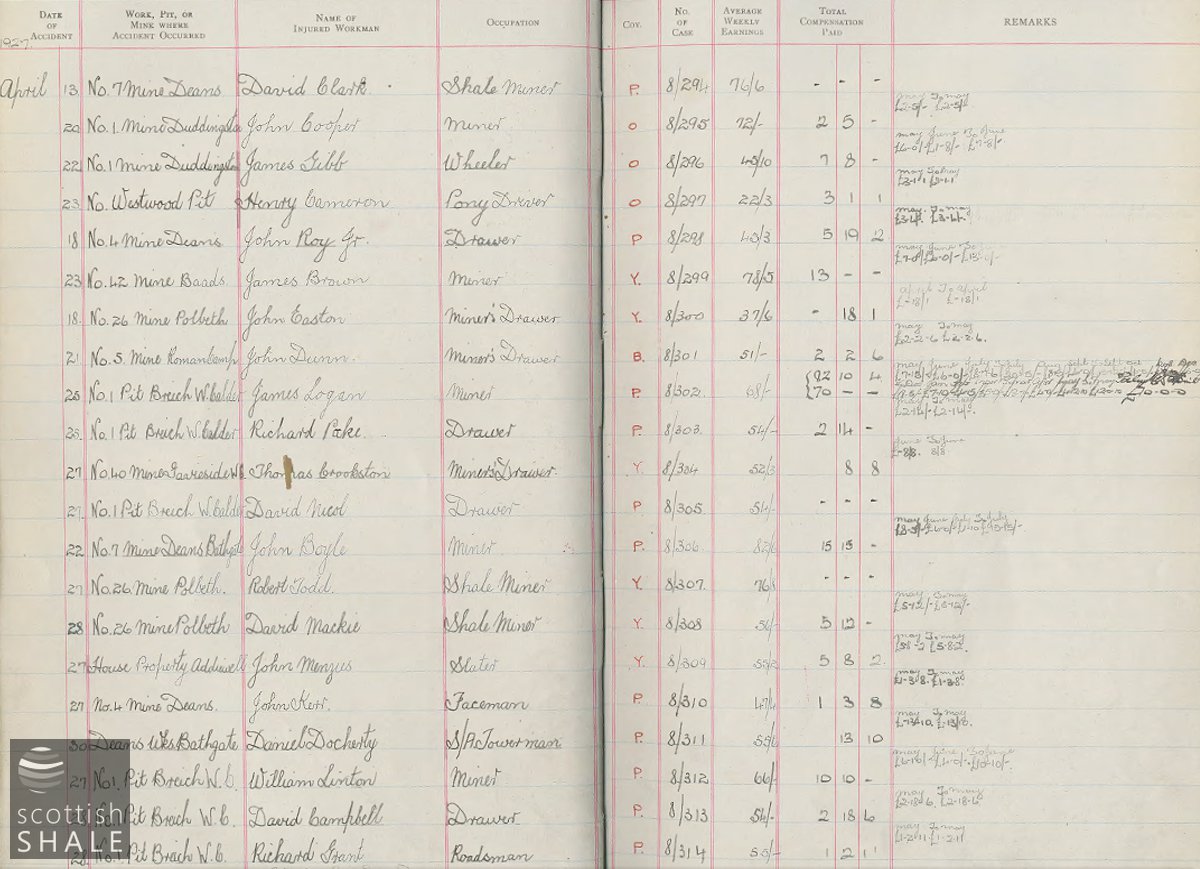 DATE OF ACCIDENT WORK, PIT, OR MINE WHERE ACCIDENT OCCURRED NAME OF INJURED WORKMAN OCCUPATION COY. NO. OF CASE AVERAGE WEEKLY EARNINGS TOTAL COMPENSATION PAID REMARKS
1927
April 13 No. 7 Mine Deans David Clark. Shale Miner P. 8/294 76/6 - - -
May To May
£2-5/- £2-5/-
20 No. 1. Mine Duddingston John Cooper Miner O 8/295 72/- 2 5 -
May June To June
£6-0/- £1-8/- £7-8/-
22 No. 1 Mine Duddingston James Gibb Wheeler O 8/296 45/10 7 8 -
May To May
£3-1-1 £3-1-1
23 No. Westwood Pit Henry Cameron Pony Driver O 8/297 22/3 3 1 1
May To May
18 No. 4 Mine Deans John Roy Jr. Drawer P 8/298 45/3 5 19 2
May June To
£7-0/- £6-0/- £13-0/-
23 No. 42 Mine Baads James Brown Miner Y. 8/299 78/5 13 - -
April To April
£-18/1 £-18/1
18. No. 26 Mine Polbeth John Easton Miner's Drawer Y. 8/300 37/6 - 18 1
May To May
£2-2-6 £2-2-6.
21 No. 5. Mine John Dunn. Miner's Drawer B. 8/301 51/- 2 2 6
May June July
25 No. 1 Pit Breich W. Calder James Logan Miner P. 8/302. 68/- {92 10 4
{70 - -
£70-0-0
May To May
£2-14/- £2-14/-
25. No. 1 Pit Breich W. Calder Richard Drawer P. 8/303. 54/- 2 14 -
June To June
£-8/8. 8/8
27 No. 40 Mine Thomas Crookston Miner's Drawer Y. 8/304 52/3 8 8
27. No. 1 Pit Breich W. Calder David Nicol Drawer P 8/305 54/- - - -
May June July To July
22. No. 7 Mine Deans Bathgate John Boyle Miner P. 8/306 82/6 15 15 -
27 No. 26 Mine Polbeth. Robert Todd. Shale Miner Y. 8/307. 76/8 - - -
May To May
£5-12/- £5-12/-
28 No. 26 Mine Polbeth David Mackie Shale Miner Y 8/308 5 12 -
May To May
£5-8-2 £5-8-2.
27 House Property Addiewell John Menzies Slater Y. 8/309 5 8 2
May To May
£1-3-8. £1-3-8.
27 No. 4 Mine Deans. John Kerr. Faceman P. 8/310 47/4 1 3 8
May To May
£-13/10. £-13/10.
30 Deans Wks Bathgate Daniel Docherty S/A Towerman P. 8/311 13 10
May June To June
£6-10/- £4-0/- £10-10/-
27 No. 1 Pit Breich W. C. William Linton Miner P. 8/312 66/- 10 10 -
May To May
£2-18-6. £2-18-6
Pit Breich W. C. David Campbell Drawer P. 8/313 54/- 2 18 6
May To May
£1-2-11 £1-2-11
28 No. 1 Pit Breich W. C. Richard Grant Roadsman P. 8/314 55/- 1 2 11
scottish
SHALE